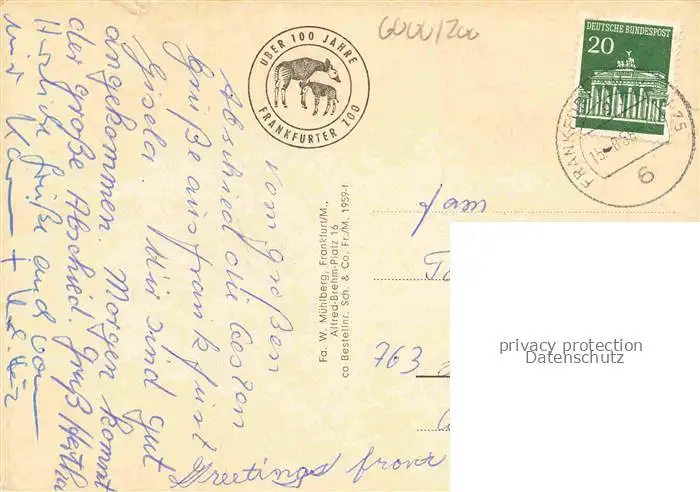 6000/200
ÜBER 100 JAHRE
FRANKFURTER ZOO
DEUTSCHE BUNDESPOST
20
FRANKF
6
vom großen
Abschied die besten
Grüße aus Frankfurt
Gisela. Wir sind gut
angekommen. Morgen kommt
der große Abschied Gruß
Herzliche Grüße auch von
mir
Fa. W. Mühlberg, Frankfurt/M.,
Alfred-Brehm-Platz 16
ca Bestellnr. Sch. & Co. Fr./M. 1959-f
Fam
763
Greetings from
privacy protection
Datenschutz